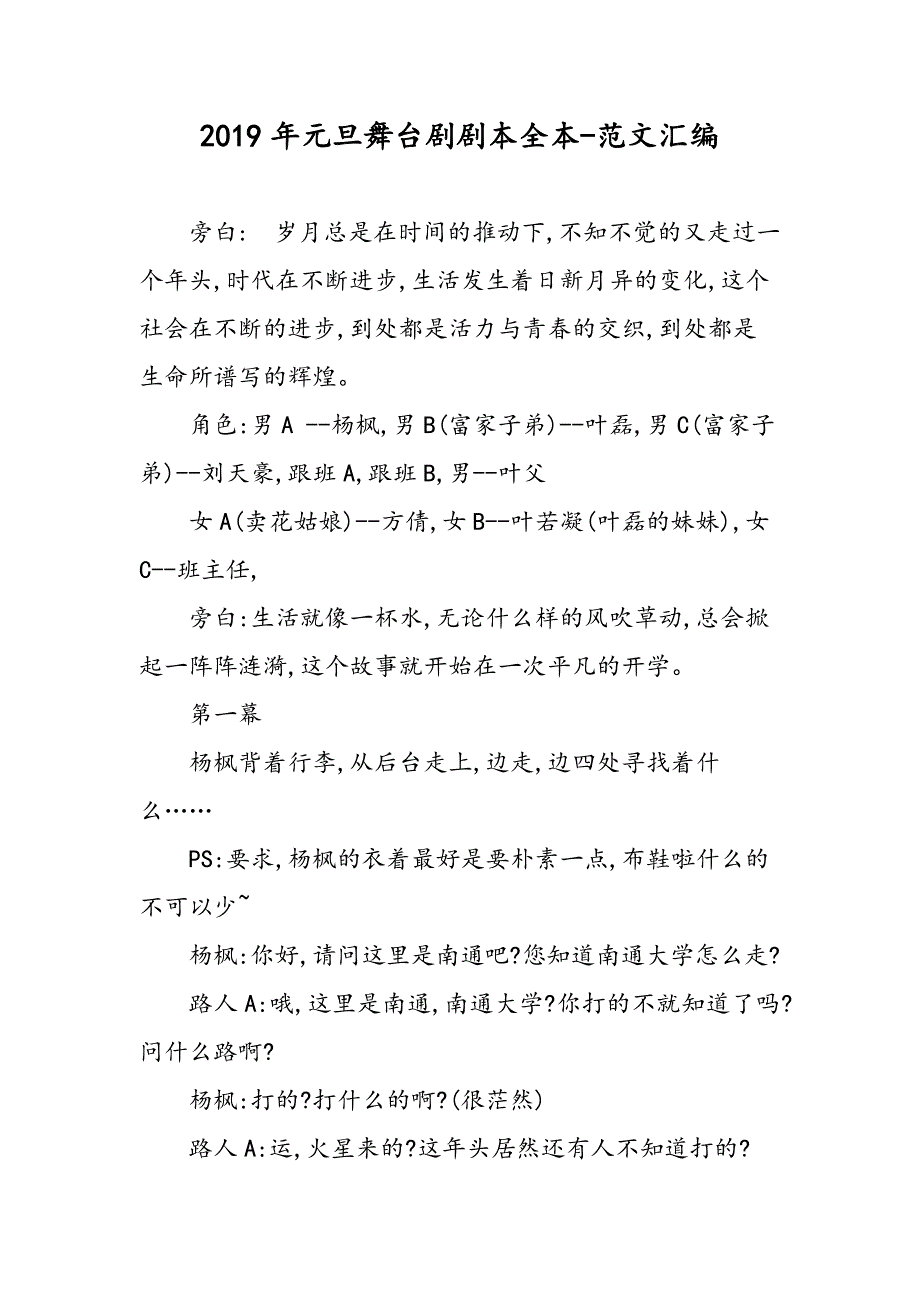 2019年元旦舞台剧剧本全本-范文汇编
旁白:　岁月总是在时间的推动下,不知不觉的又走过一
个年头,时代在不断进步,生活发生着日新月异的变化,这个
社会在不断的进步,到处都是活力与青春的交织,到处都是
生命所谱写的辉煌。
角色:男A --杨枫,男B(富家子弟)--叶磊,男C(富家子
弟)--刘天豪,跟班A,跟班B,男--叶父
女A(卖花姑娘)--方倩,女B--叶若凝(叶磊的妹妹),女
C--班主任,
旁白:生活就像一杯水,无论什么样的风吹草动,总会掀
起一阵阵涟漪,这个故事就开始在一次平凡的开学。
第一幕
杨枫背着行李,从后台走上,边走,边四处寻找着什
么……
PS:要求,杨枫的衣着最好是要朴素一点,布鞋啦什么的
不可以少~
杨枫:你好,请问这里是南通吧?您知道南通大学怎么走?
路人A:哦,这里是南通,南通大学?你打的不就知道了吗?
问什么路啊?
杨枫:打的?打什么的啊?(很茫然)
路人A:运,火星来的?这年头居然还有人不知道打的?